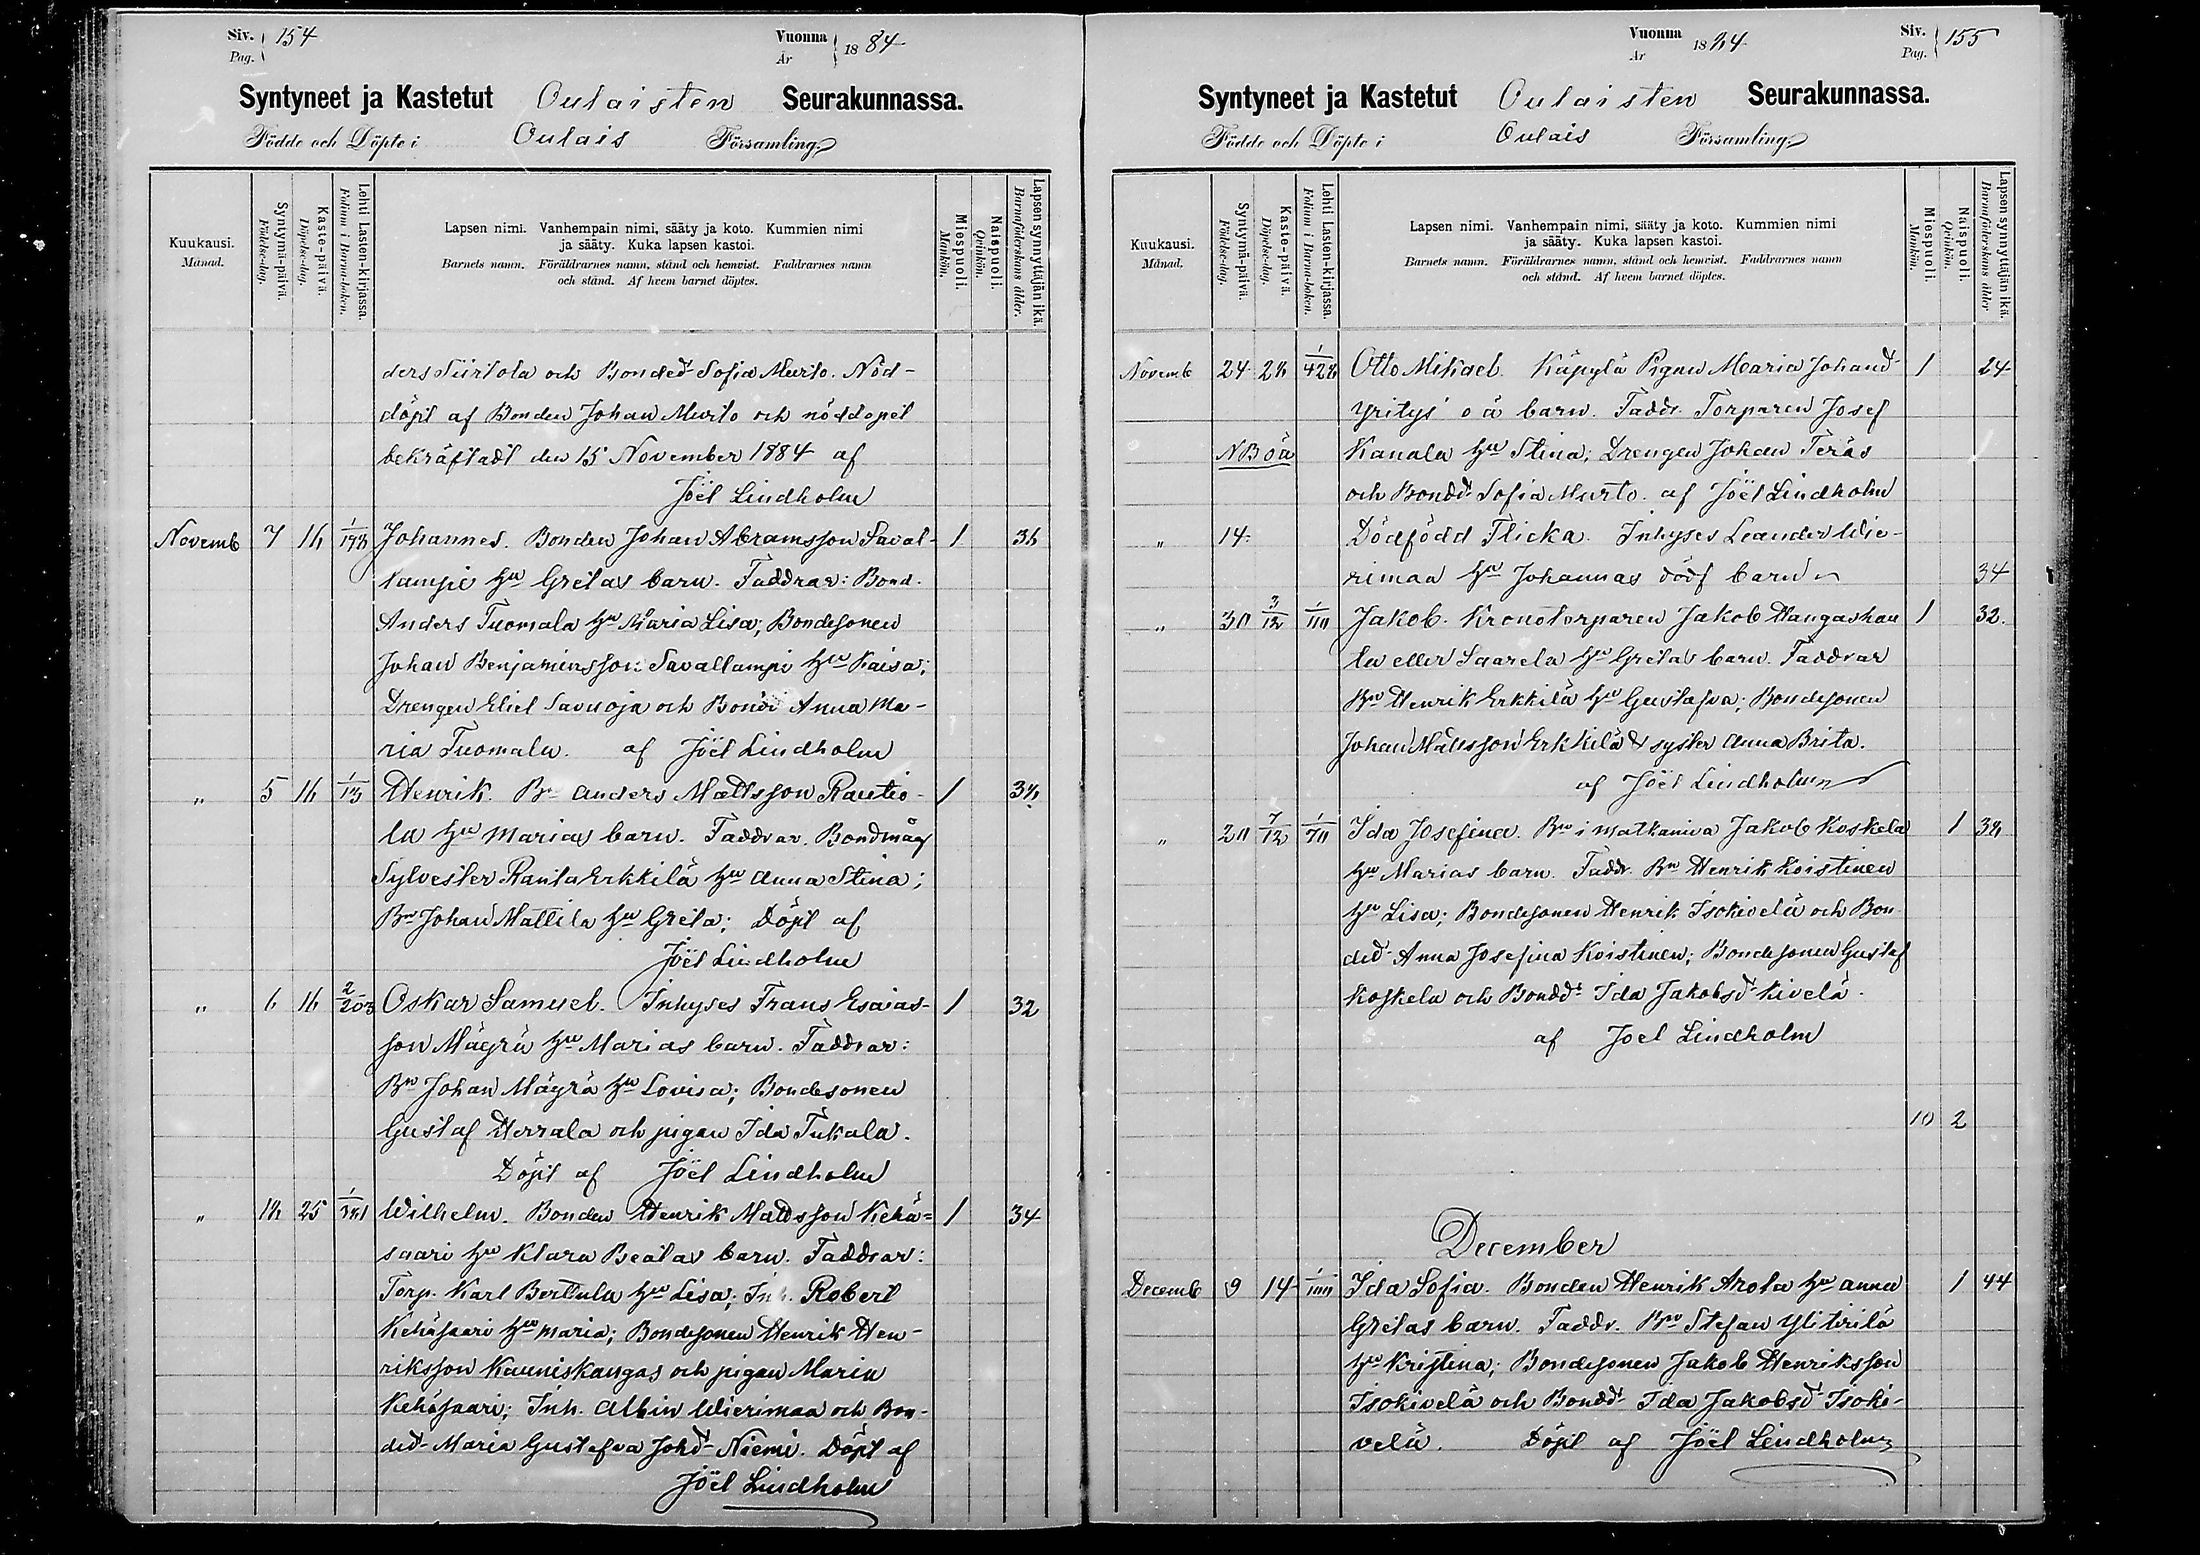 Siv. 154
Pag.
Vuonna 1884
År
Syntyneet ja Kastetut Oulaisten Seurakunnassa.
Födde och Döpte i Oulais Församling
Kuukausi.
Månad.
Syntymä-päivä.
Födelse-dag.
Kaste-päivä.
Döpelse-dag.
Lehti Lasten-kirjassa.
Folium i Barnaboken.
Lapsen nimi. Vanhempain nimi, sääty ja koto. Kummien nimi
ja sääty. Kuka lapsen kastoi.
Barnets namn. Föräldrarnes namn, stånd och hemvist. Faddrarnes namn
och stånd. Af hvem barnet döptes.
Miespuoli.
Mankön.
Naispuoli.
Qvinkön.
Lapsen synnyttäjän ikä.
Barnaföderskans ålder.
ders Siirtola och Bonded Sofia Murto. Nöd-
döpt af Bonden Johan Murto och nöddopet
bekräftadt den 15 November 1884 af
Joël Lindholm
Novemb 7 16 Johannes. Bonden Johan Abramsson Saval- 1 36
kampi hu Gretas barn. Faddrar: Bond.
Anders Tuomala hu Maria Lisa; Bondesonen
Johan Benjaminsson Savallampi hu Kaisa;
Drengen Eliel Savuoja och Bondd Anna Ma-
ria Tuomala. af Joël Lindholm
" 5 16 1/13 Henrik. Bn Anders Mattsson Rautio- 1
la hu Marias barn. Faddrar. Bondmåg
Sylvester RantaErkkilä hu Anna Stina;
Bn Johan Mattila hu Greta; Döpt af
Joël Lindholm
" 6 16 2/203 Oskar Samuel. Inhyses Frans Esaias- 1 32
son Mäyrä hu Marias barn. Faddrar:
Bn Johan Mäyrä hu Lovisa; Bondesonen
Gustaf Herrala och pigan Ida Tukala.
Döpt af Joël Lindholm
" 25 Wilhelm. Bonden Henrik Mattsson Kehä= 1 34
saari hu Klara Beatas barn. Faddrar:
Torp. Karl Berttula hu Lisa; Inh. Robert
Kehäsaari hu Maria; Bondesonen Henrik Hen-
riksson Kauniskangas och pigan Maria
Kehäsaari; Inh. Albin Wierimaa och Bon-
ded Maria Gustafva Johd Niemi. Döpt af
Joël Lindholm
Vuonna 1884
År
Siv. 155
Pag.
Syntyneet ja Kastetut Oulaisten Seurakunnassa.
Födde och Döpte i Oulais Församling
Kuukausi.
Månad.
Syntymä-päivä.
Födelse-dag.
Kaste-päivä.
Döpelse-dag.
Lehti Lasten-kirjassa.
Folium i Barnaboken.
Lapsen nimi. Vanhempain nimi, sääty ja koto. Kummien nimi
ja sääty. Kuka lapsen kastoi.
Barnets namn. Föräldrarnes namn, stånd och hemvist. Faddrarnes namn
och stånd. Af hvem barnet döptes.
Miespuoli.
Mankön.
Naispuoli.
Qvinkön.
Lapsen synnyttäjän ikä.
Barnaföderskans ålder.
Novemb 24 28 1/428 Otto Mikael. Käpylä Pigan Maria Johansd 1 24
Yritys' o ä barn. Faddr. Torparen Josef
NB oä Kanala hu Stina; Drengen Johan Teräs
och Bondd Sofia Murto. af Joël Lindholm
" 14. Dödfödd Flicka. Inhyses Leander Wie-
rimaa hu Johannas dödf barn 34
" 30 3/12 1/110 Jakob. Kronotorparen Jakob Hangaskan 1 32.
la eller Saarela hu Gretas barn. Faddrar
Bn Henrik Erkkilä hu Gustafva; Bondesonen
Johan Mattsson Erkkilä & syster Anna Brita.
af Joël Lindholm
" 20 7/12 1/70 Ida Josefina. Bn i Matkaniva Jakob Koskela 1
hu Marias barn. Faddr. Bn Henrik Koistinen
hu Lisa; Bondesonen Henrik Isokivelä och Bon-
ded Anna Josefina Koistinen; Bondesonen Gustaf
Koskela och Bondd Ida Jakobsd Kivelä.
af Joel Lindholm
10 2
December
Decemb 9 14 Ida Sofia. Bonden Henrik Arola hu Anna 1 44
Gretas barn. Faddr. Bn Stefan Ylitirilä
hu Kristina; Bondesonen Jakob Henriksson
Isokivelä och Bondd Ida Jakobsd Isoki-
velä. Döpt af Joël Lindholm